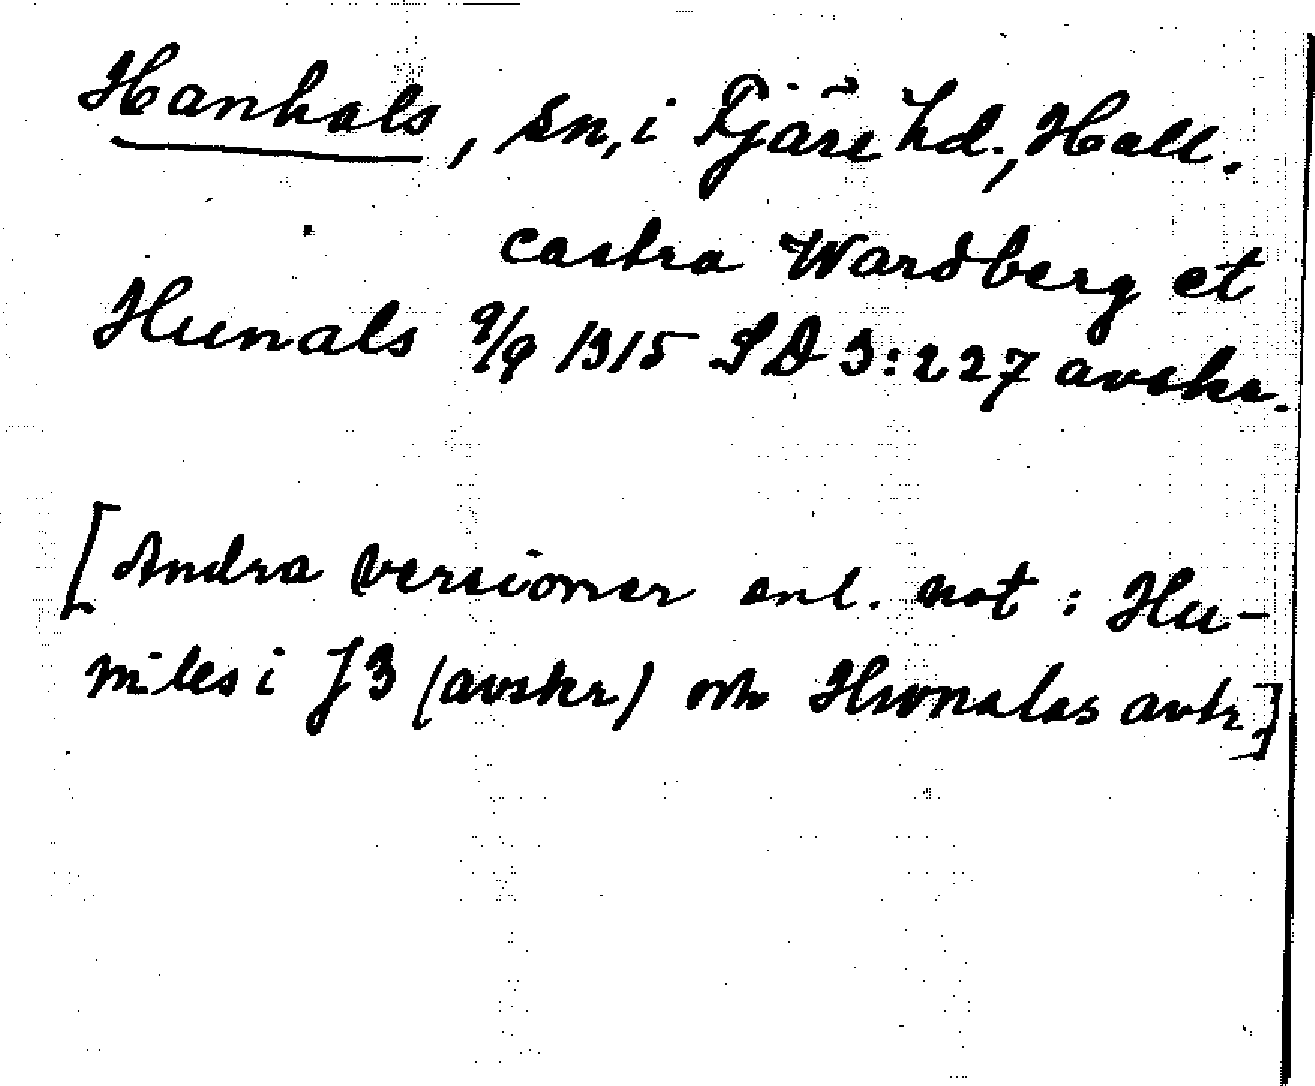 Hanhals, sn, i Fjäre hd., Hall.
castra Wardberg et
Hunals 9/9 1315 SD 3:227 avskr.
[Andra versioner enl. not : Hu-
niles i J3 (avskr) och Hunalas avskr]